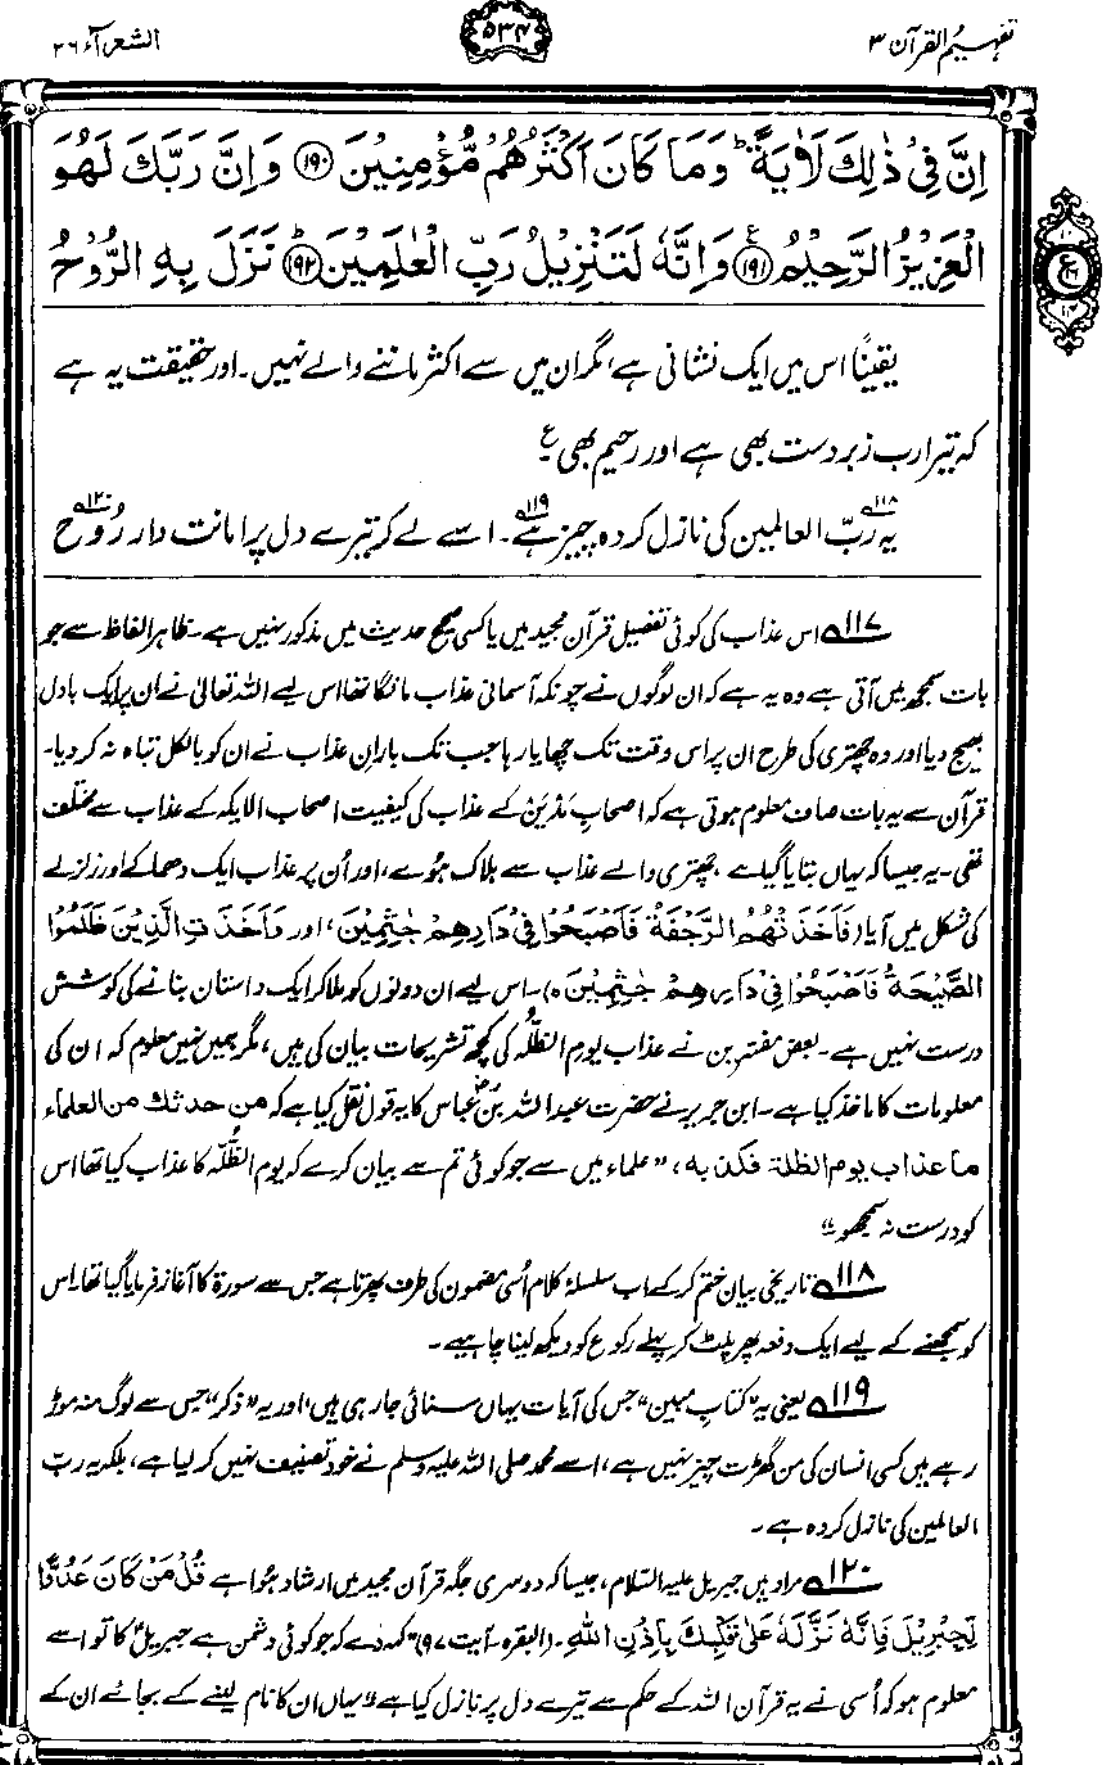 تفہیم القرآن ۳
۵۳۴
الشعرآء ۲۶
اِنَّ فِیْ ذٰلِكَ لَاٰیَةً ؕ وَمَا كَانَ اَكْثَرُهُمْ مُّؤْمِنِیْنَ ﴿۱۹۰﴾ وَاِنَّ رَبَّكَ لَهُوَ
الْعَزِیْزُ الرَّحِیْمُ ﴿۱۹۱﴾ ع وَاِنَّهٗ لَتَنْزِیْلُ رَبِّ الْعٰلَمِیْنَ ﴿۱۹۲﴾ؕ نَزَلَ بِهِ الرُّوْحُ
ع
یقینًا اس میں ایک نشانی ہے، مگر ان میں سے اکثر ماننے والے نہیں۔ اور حقیقت یہ ہے
کہ تیرا رب زبردست بھی ہے اور رحیم بھی ع
یہ۱۱۸ ربّ العالمین کی نازل کردہ چیز ہے۱۱۹۔ اسے لے کر تیرے دل پر امانت دار رُوح۱۲۰
۱۱۷؎ اس عذاب کی کوئی تفصیل قرآن مجید میں یا کسی صحیح حدیث میں مذکور نہیں ہے۔ ظاہر الفاظ سے جو
بات سمجھ میں آتی ہے وہ یہ ہے کہ ان لوگوں نے چونکہ آسمانی عذاب مانگا تھا اس لیے اللہ تعالیٰ نے ان پر ایک بادل
بھیج دیا اور وہ چھتری کی طرح ان پر اس وقت تک چھایا رہا جب تک بارانِ عذاب نے ان کو بالکل تباہ نہ کر دیا۔
قرآن سے یہ بات صاف معلوم ہوتی ہے کہ اصحابِ مَدْیَنْ کے عذاب کی کیفیت اصحاب الایکہ کے عذاب سے مختلف
تھی۔ یہ جیسا کہ یہاں بتایا گیا ہے، چھتری والے عذاب سے ہلاک ہوئے، اور اُن پر عذاب ایک دھماکے اور زلزلے
کی شکل میں آیا (فَاَخَذَتْهُمُ الرَّجْفَةُ فَاَصْبَحُوْا فِیْ دَارِهِمْ جٰثِمِیْنَ، اور وَاَخَذَتِ الَّذِیْنَ ظَلَمُوا
الصَّیْحَةُ فَاَصْبَحُوْا فِیْ دِیَارِهِمْ جٰثِمِیْنَ ہ)۔ اس لیے ان دونوں کو ملا کر ایک داستان بنانے کی کوشش
درست نہیں ہے۔ بعض مفسّرین نے عذاب یوم الظُّلّہ کی کچھ تشریحات بیان کی ہیں، مگر ہمیں نہیں معلوم کہ ان کی
معلومات کا ماخذ کیا ہے۔ ابن جریر نے حضرت عبد اللہ بن عباسؓ کا یہ قول نقل کیا ہے کہ من حدثك من العلماء
ما عذاب یوم الظلة فكذبه، "علماء میں سے جو کوئی تم سے بیان کرے کہ یوم الظُّلّہ کا عذاب کیا تھا اس
کو درست نہ سمجھو"۔
۱۱۸؎ تاریخی بیان ختم کر کے اب سلسلۂ کلام اُسی مضمون کی طرف پھرتا ہے جس سے سورۃ کا آغاز فرمایا گیا تھا۔ اس
کو سمجھنے کے لیے ایک دفعہ پھر پلٹ کر پہلے رکوع کو دیکھ لینا چاہیے۔
۱۱۹؎ یعنی یہ "کتابِ مبین" جس کی آیات یہاں سنائی جا رہی ہیں، اور یہ "ذکر" جس سے لوگ منہ موڑ
رہے ہیں کسی انسان کی من گھڑت چیز نہیں ہے، اسے محمد صلی اللہ علیہ وسلم نے خود تصنیف نہیں کر لیا ہے، بلکہ یہ ربّ
العالمین کی نازل کردہ ہے۔
۱۲۰؎ مراد ہیں جبریل علیہ السّلام، جیسا کہ دوسری جگہ قرآن مجید میں ارشاد ہوا ہے قُلْ مَنْ كَانَ عَدُوًّا
لِّجِبْرِیْلَ فَاِنَّهٗ نَزَّلَهٗ عَلٰی قَلْبِكَ بِاِذْنِ اللّٰهِ۔ (البقرہ۔ آیت ۹۷) "کہہ دے کہ جو کوئی دشمن ہے جبریلؑ کا تو اسے
معلوم ہو کہ اُسی نے یہ قرآن اللہ کے حکم سے تیرے دل پر نازل کیا ہے"۔ یہاں ان کا نام لینے کے بجائے ان کے